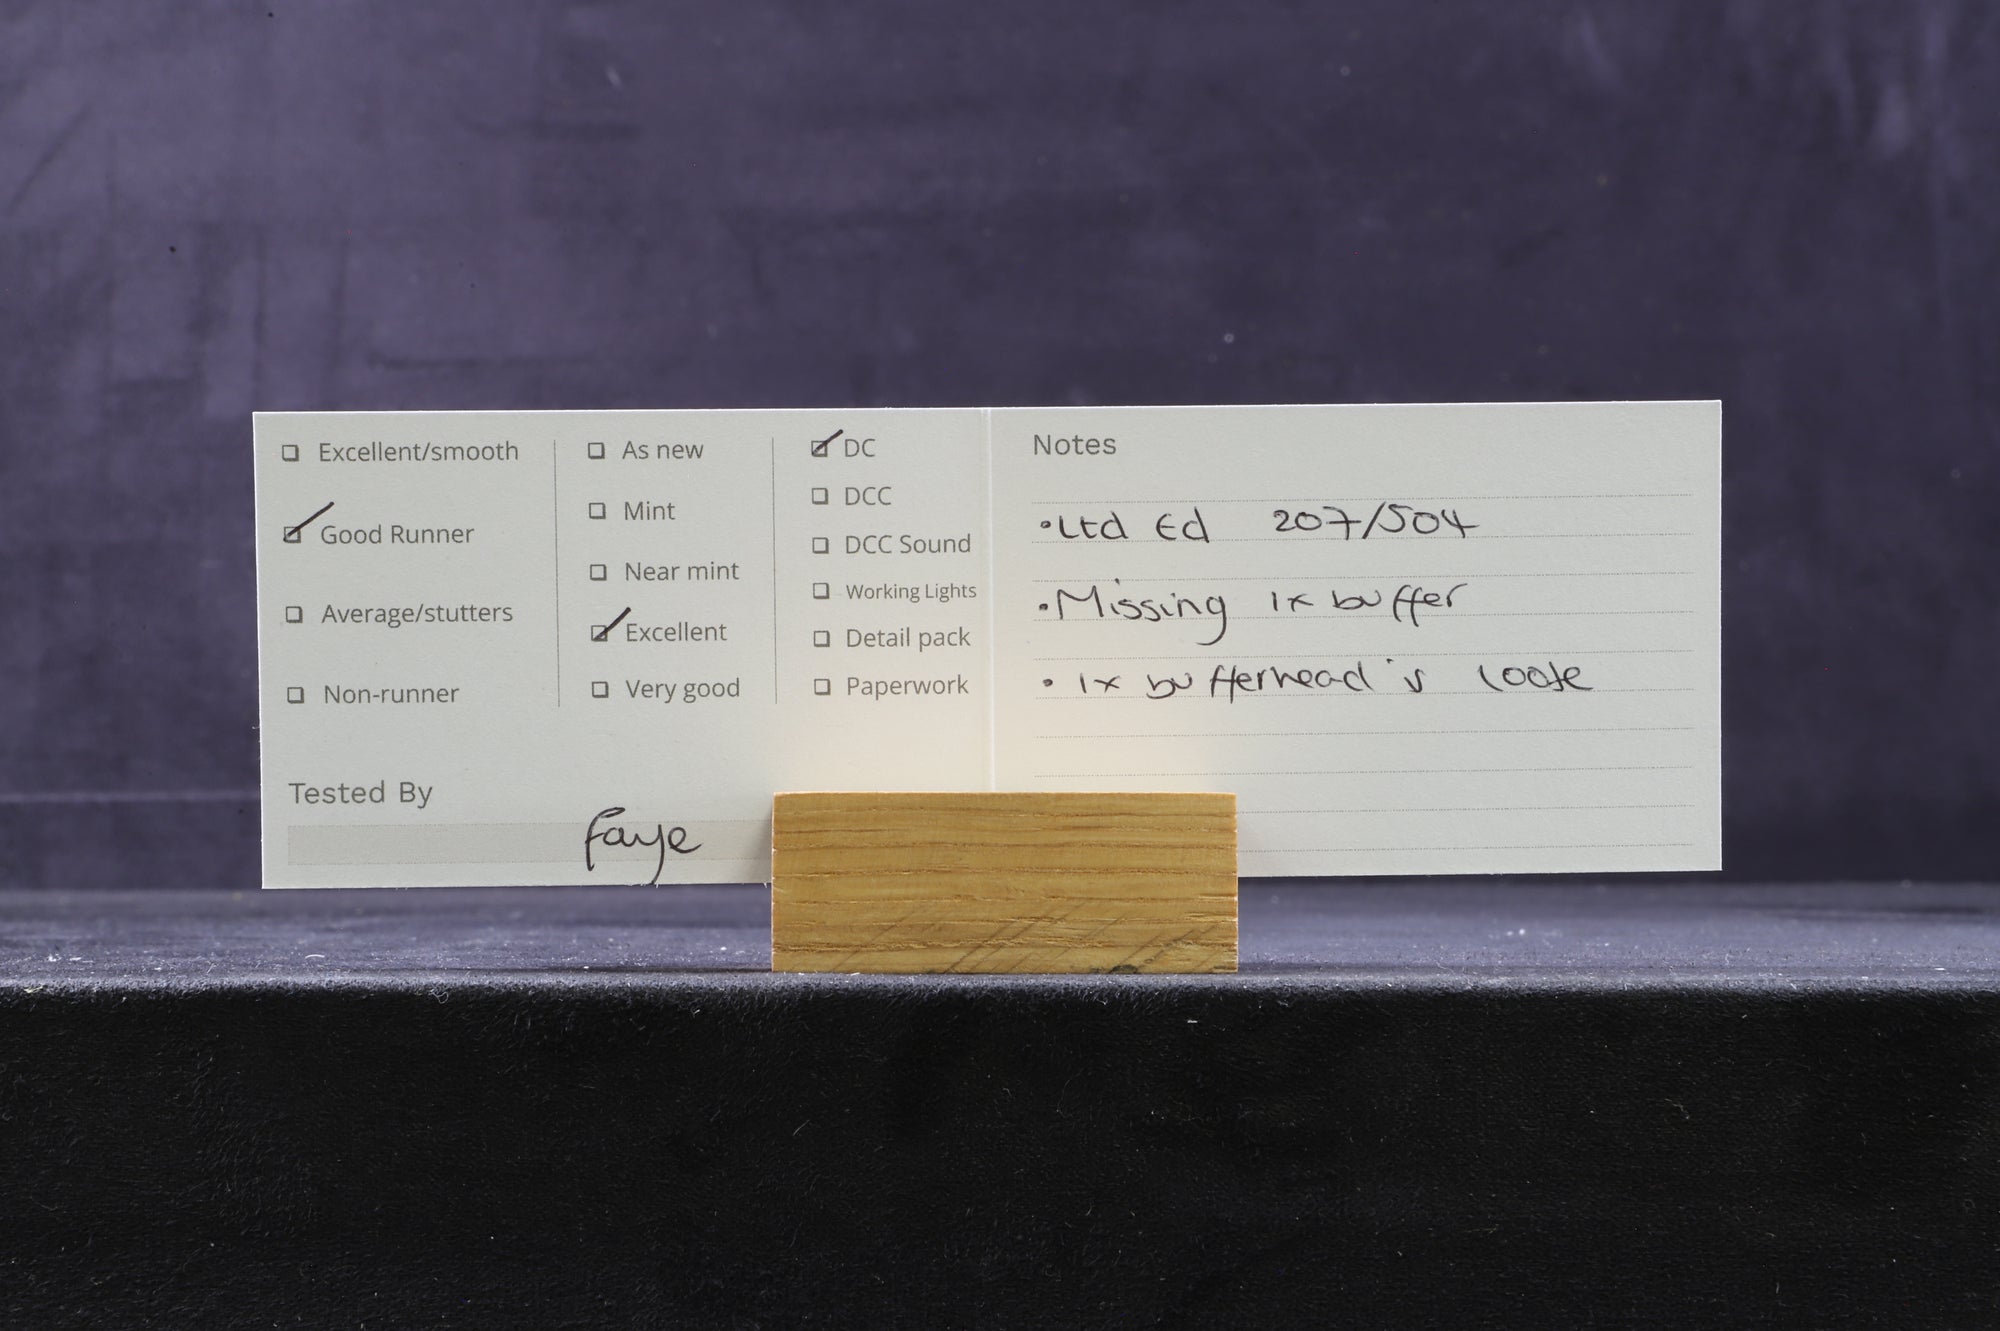 Excellent/smooth
Good Runner
Average/stutters
Non-runner
As new
Mint
Near mint
Excellent
Very good
DC
DCC
DCC Sound
Working Lights
Detail pack
Paperwork
Tested By
Faye
Notes
•Ltd Ed 207/504
•Missing 1x buffer
• 1x bufferhead is loose